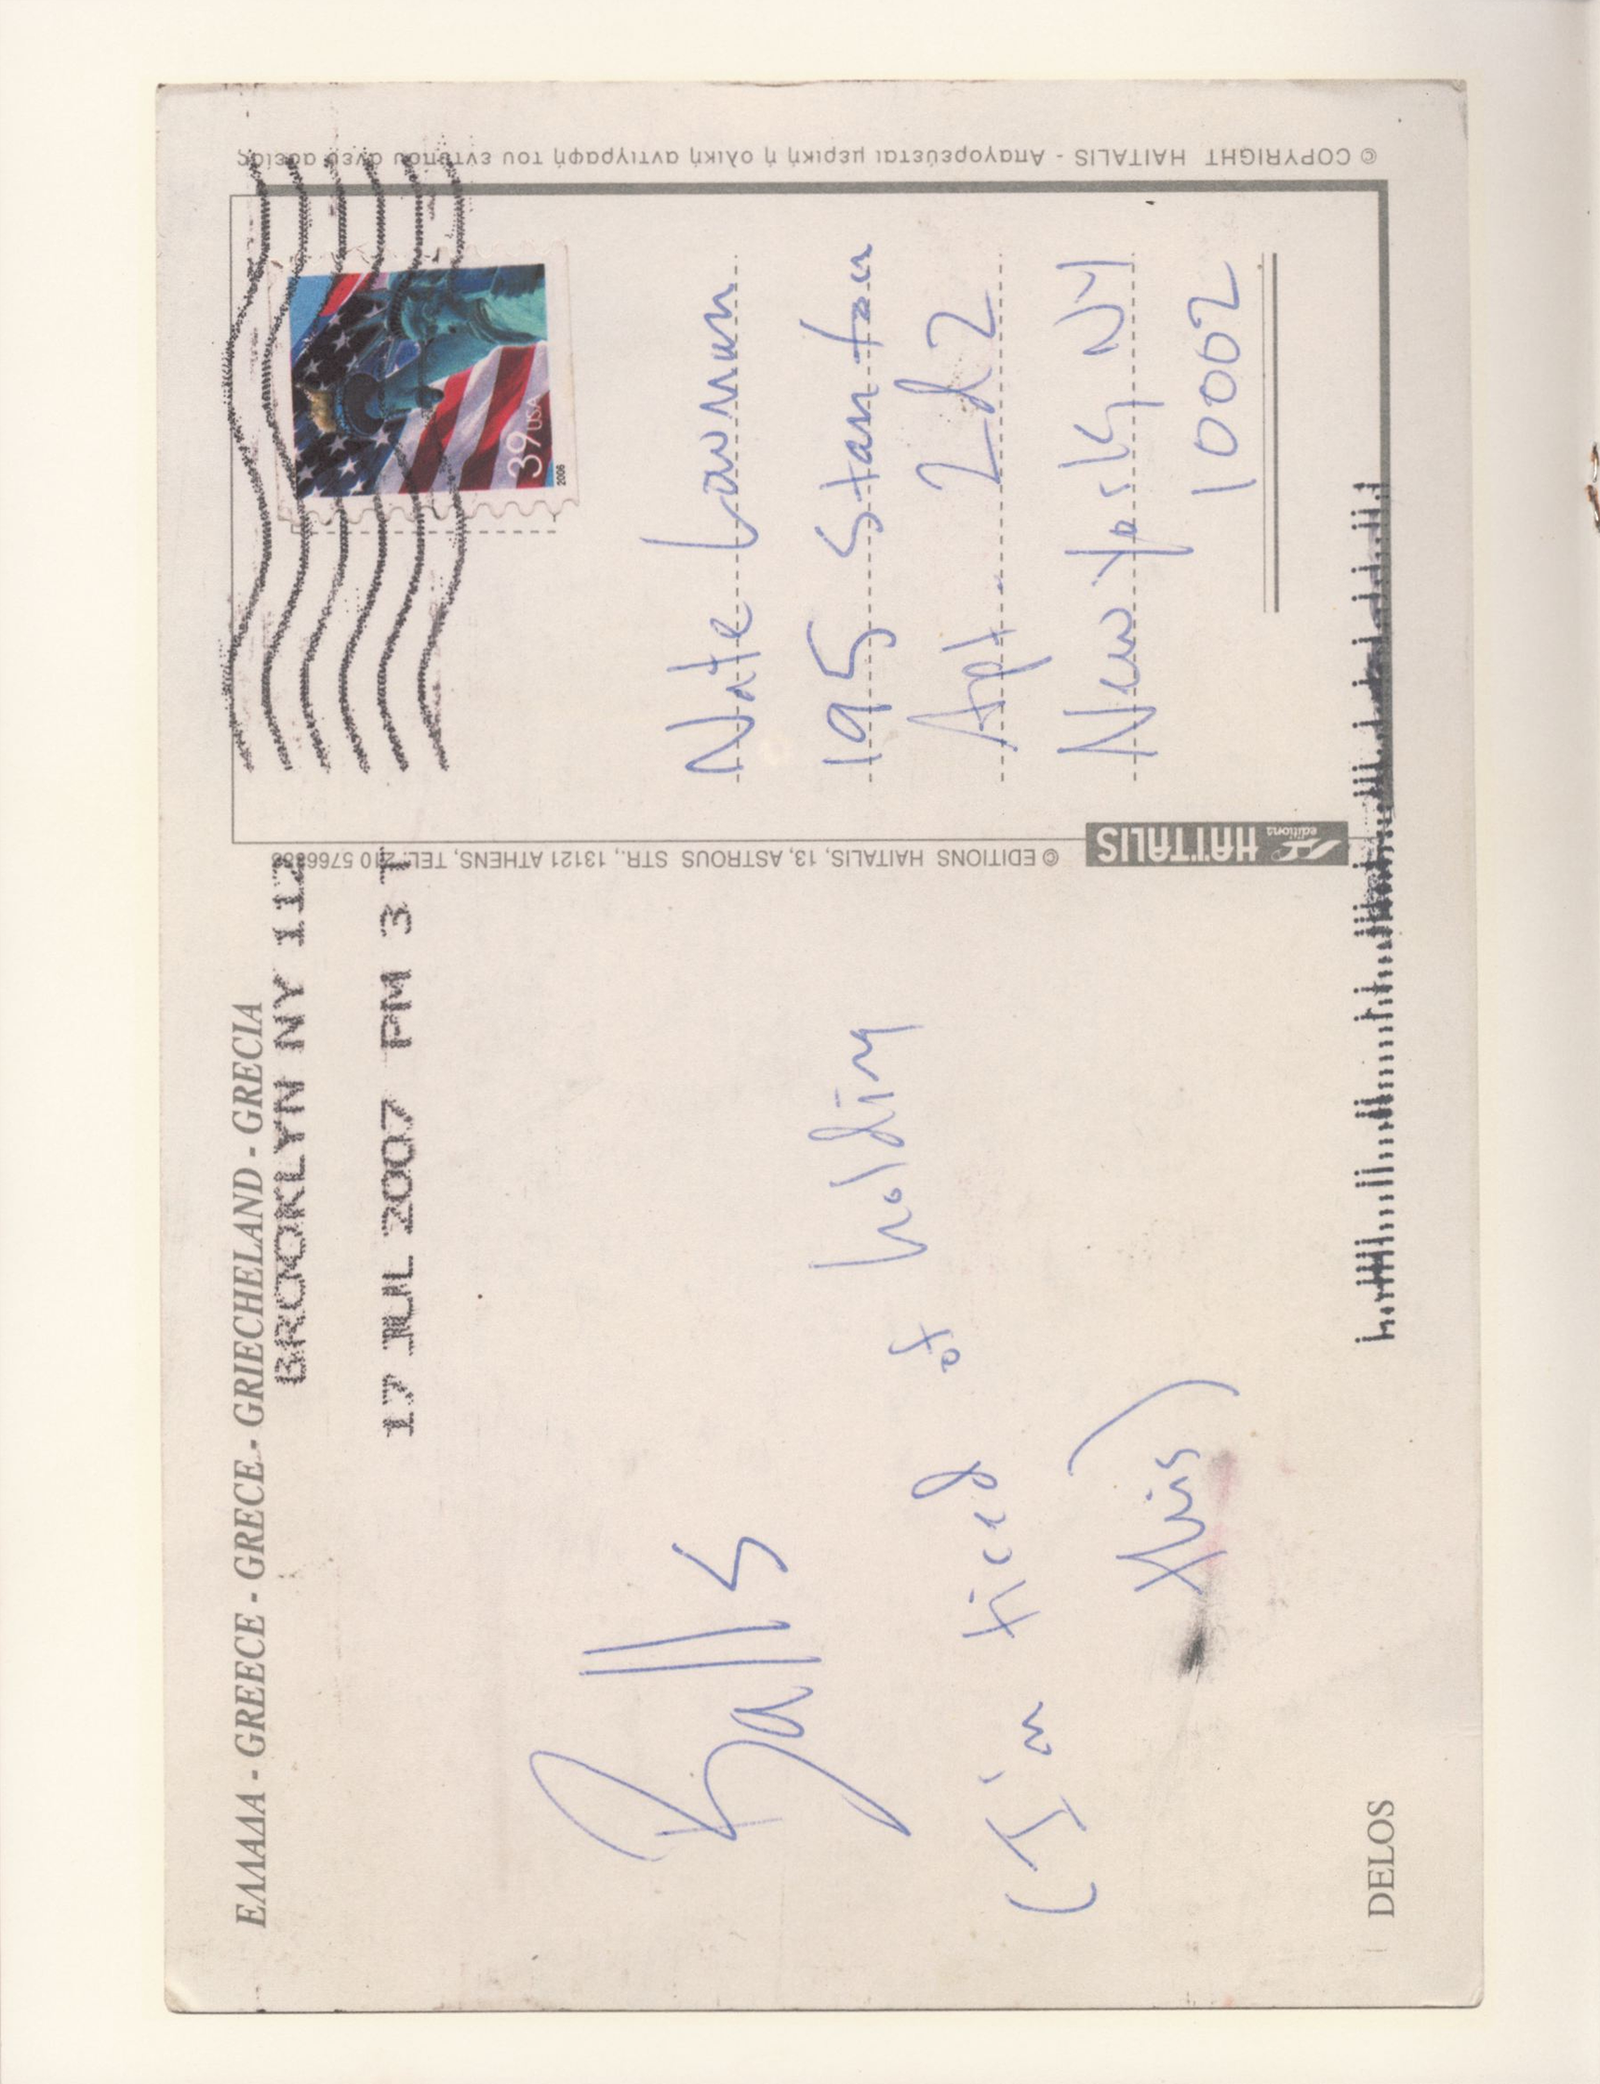 ΕΛΛΑΔΑ - GREECE - GRECE - GRIECHELAND - GRECIA
BROOKLYN NY 112
17 JUL 2007 PM 3 T
Balls
(I'm tired of holding
this)
DELOS
© EDITIONS HAITALIS, 13, ASTROUS STR., 13121 ATHENS, TEL. 210 5766
HAITALIS
editions
39 USA
2006
Nate Lowman
195 Stanton
Apt. 2d2
New York NY
10002
© COPYRIGHT HAITALIS - Απαγορεύεται μερική ή ολική αντιγραφή του εντύπου άνευ αδείας